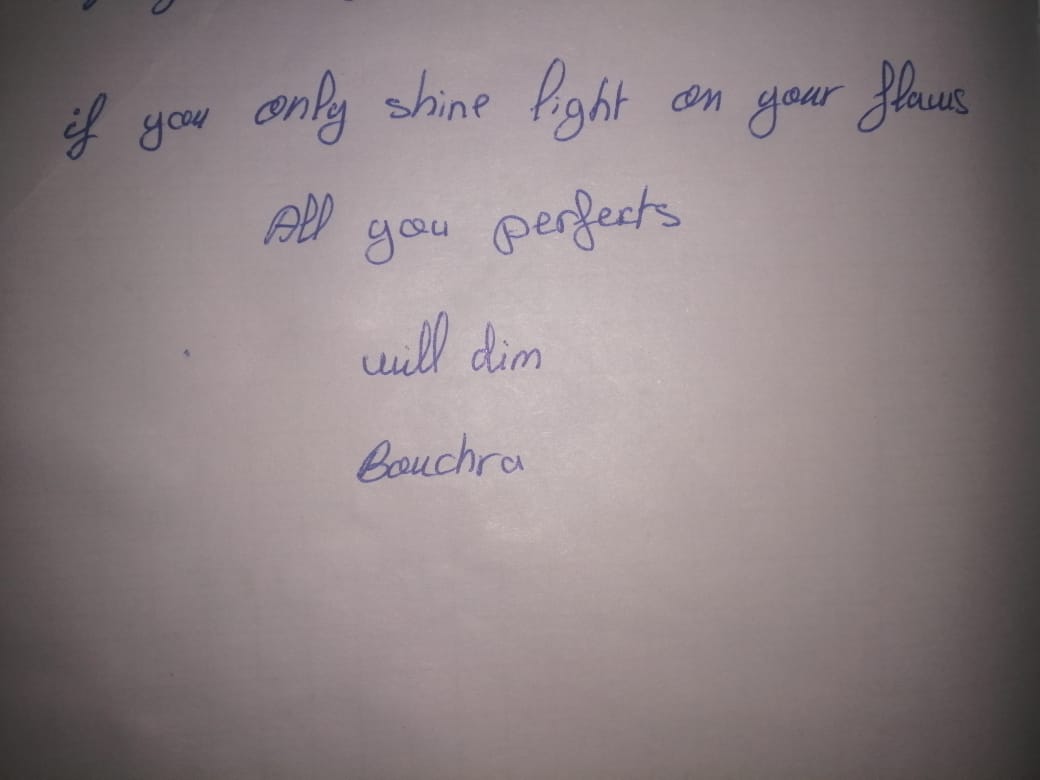 if you only shine light on your flaws
All you perfects
will dim
Bouchra